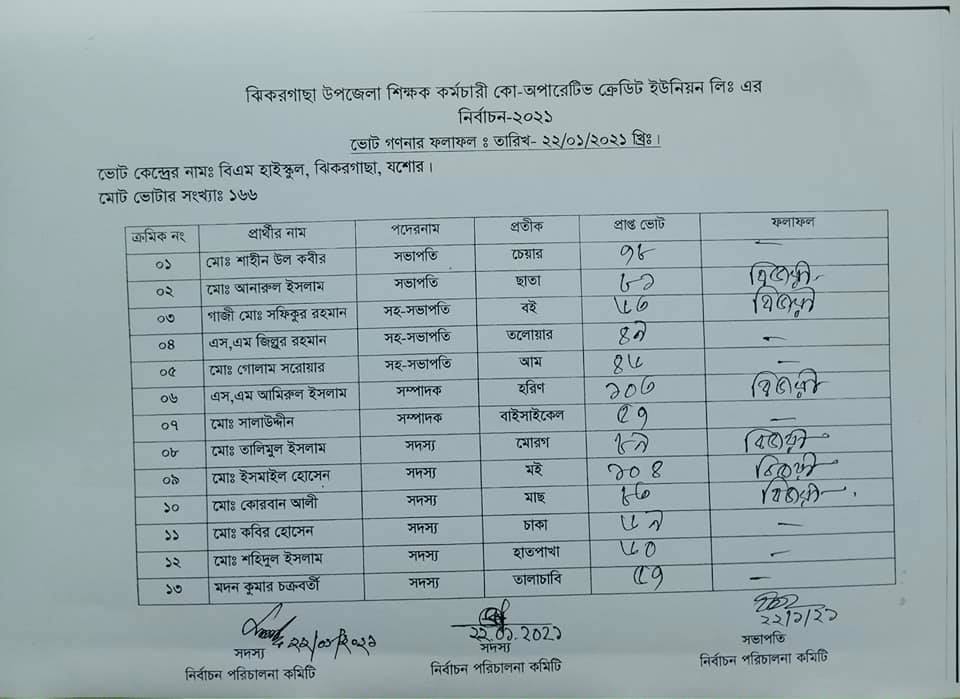 ঝিকরগাছা উপজেলা শিক্ষক কর্মচারী কো-অপারেটিভ ক্রেডিট ইউনিয়ন লিঃ এর
নির্বাচন-২০২১
ভোট গণনার ফলাফল ঃ তারিখ- ২২/০১/২০২১ খ্রিঃ।
ভোট কেন্দ্রের নামঃ বিএম হাইস্কুল, ঝিকরগাছা, যশোর।
মোট ভোটার সংখ্যাঃ ১৬৬
ক্রমিক নং প্রার্থীর নাম পদেরনাম প্রতীক প্রাপ্ত ভোট ফলাফল
০১ মোঃ শাহীন উল কবীর সভাপতি চেয়ার ৭৮ —
০২ মোঃ আনারুল ইসলাম সভাপতি ছাতা ৮১ বিজয়ী
০৩ গাজী মোঃ সফিকুর রহমান সহ-সভাপতি বই ৬৩ বিজয়ী
০৪ এস,এম জিল্লুর রহমান সহ-সভাপতি তলোয়ার ৪৯ —
০৫ মোঃ গোলাম সরোয়ার সহ-সভাপতি আম ৪৬ —
০৬ এস,এম আমিরুল ইসলাম সম্পাদক হরিণ ১০৩ বিজয়ী
০৭ মোঃ সালাউদ্দীন সম্পাদক বাইসাইকেল ৫৭ —
০৮ মোঃ তালিমুল ইসলাম সদস্য মোরগ ৮৯ বিজয়ী
০৯ মোঃ ইসমাইল হোসেন সদস্য মই ১০৪ বিজয়ী
১০ মোঃ কোরবান আলী সদস্য মাছ ৮৩ বিজয়ী
১১ মোঃ কবির হোসেন সদস্য চাকা ৬৯ —
১২ মোঃ শহিদুল ইসলাম সদস্য হাতপাখা ৬০ —
১৩ মদন কুমার চক্রবর্তী সদস্য তালাচাবি ৫৭ —
২২/০১/২০২১ ২২.০১.২০২১ ২২/১/২১
সদস্য সদস্য সভাপতি
নির্বাচন পরিচালনা কমিটি নির্বাচন পরিচালনা কমিটি নির্বাচন পরিচালনা কমিটি